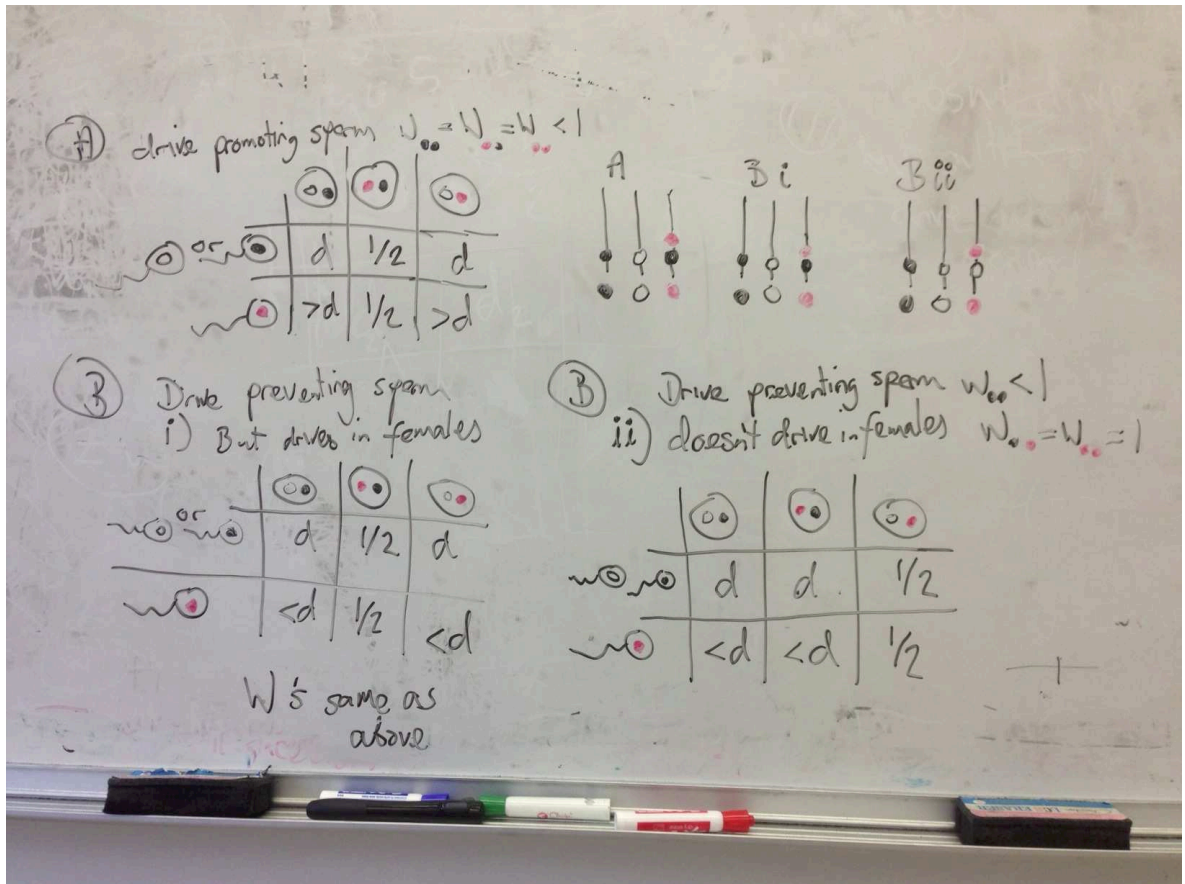 A drive promoting sperm W = W = W < 1
or d 1/2 d
>d 1/2 >d
A B i B ii
B Drive preventing sperm
i) But drives in females
or d 1/2 d
<d 1/2 <d
W's same as
above
B Drive preventing sperm W < 1
ii) doesn't drive in females W = W = 1
d d 1/2
<d <d 1/2